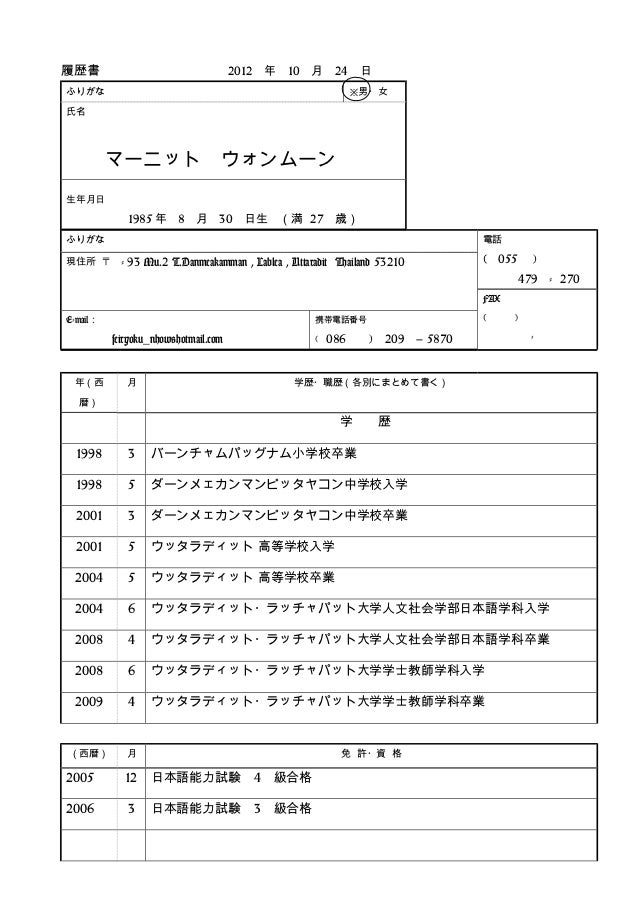 履歴書 2012 年 10 月 24 日
ふりがな ※男・女
氏名
マーニット ウォンムーン
生年月日
1985 年 8 月 30 日生 (満 27 歳)
ふりがな 電話
現住所 〒 93 Mu.2 T.Danmeakamman , Lablea , Uttaradit Thailand 53210
( 055 )
479 - 270
FAX
E-mail : 携帯電話番号
( )
feiryoku_nhowshotmail.com ( 086 ) 209 – 5870
年(西暦) 月 学歴・職歴(各別にまとめて書く)
学 歴
1998 3 バーンチャムパッグナム小学校卒業
1998 5 ダーンメェカンマンピッタヤコン中学校入学
2001 3 ダーンメェカンマンピッタヤコン中学校卒業
2001 5 ウッタラディット 高等学校入学
2004 5 ウッタラディット 高等学校卒業
2004 6 ウッタラディット・ラッチャパット大学人文社会学部日本語学科入学
2008 4 ウッタラディット・ラッチャパット大学人文社会学部日本語学科卒業
2008 6 ウッタラディット・ラッチャパット大学学士教師学科入学
2009 4 ウッタラディット・ラッチャパット大学学士教師学科卒業
(西暦) 月 免 許・資 格
2005 12 日本語能力試験 4 級合格
2006 3 日本語能力試験 3 級合格